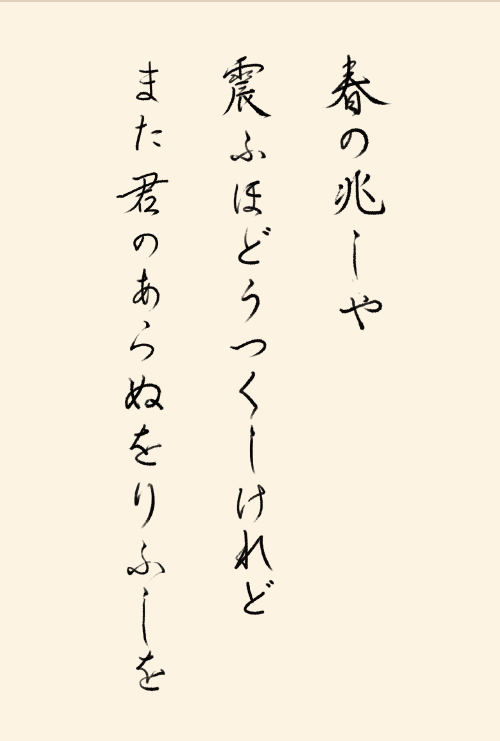 春の兆しや
震ふほどうつくしけれど
また君のあらぬをりふしを